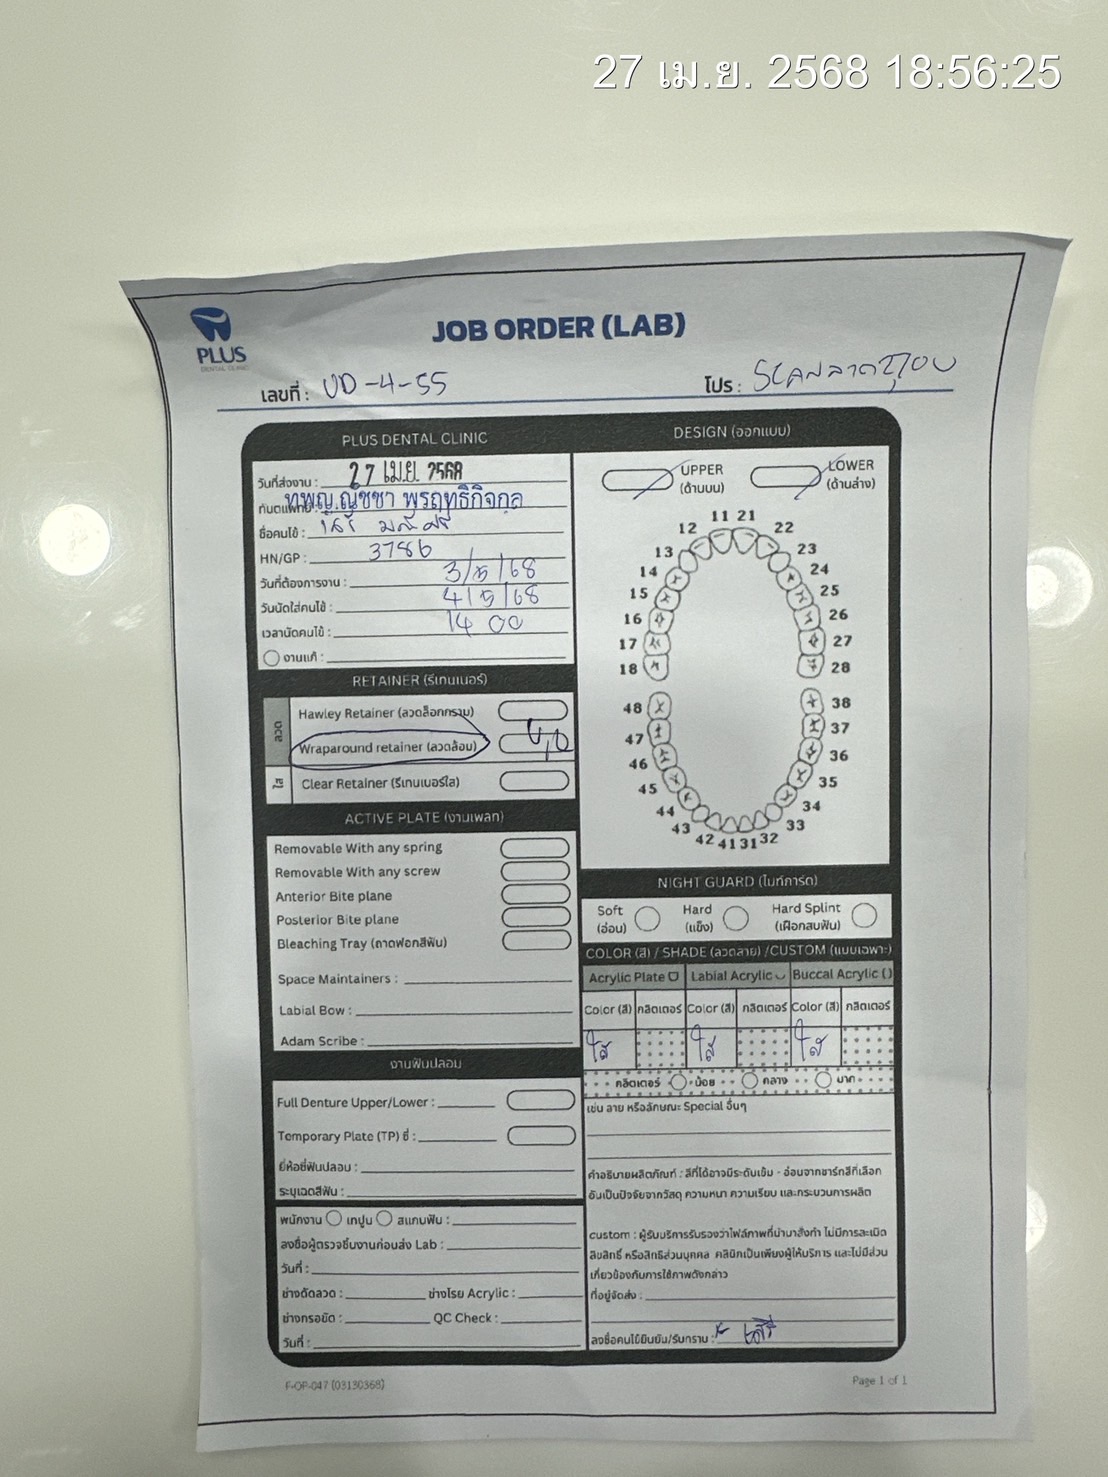 27 เม.ย. 2568 18:56:25
PLUS
DENTAL CLINIC
JOB ORDER (LAB)
เลขที่ : UD-4-55
โปร : SCANลวด
PLUS DENTAL CLINIC
วันที่ส่งงาน : 27 เม.ย. 2568
ทันตแพทย์ : ทพญ.ณัชชา พูรฤทธิกิจกุล
ชื่อคนไข้ :
HN/GP : 3786
วันที่ต้องการงาน : 3/5/68
วันนัดใส่คนไข้ : 4/5/68
เวลานัดคนไข้ : 14 00
งานแก้ :
RETAINER (รีเทนเนอร์)
ลวด
Hawley Retainer (ลวดล็อกกราม)
Wraparound retainer (ลวดล้อม) U,L
ใส
Clear Retainer (รีเทนเนอร์ใส)
ACTIVE PLATE (งานเพลท)
Removable With any spring
Removable With any screw
Anterior Bite plane
Posterior Bite plane
Bleaching Tray (ถาดฟอกสีฟัน)
Space Maintainers :
Labial Bow :
Adam Scribe :
งานฟันปลอม
Full Denture Upper/Lower :
Temporary Plate (TP) ซี่ :
ยี่ห้อซี่ฟันปลอม :
ระบุเฉดสีฟัน :
พนักงาน เทปูน สแกนฟัน :
ลงชื่อผู้ตรวจชิ้นงานก่อนส่ง Lab :
วันที่ :
ช่างดัดลวด : ช่างโรย Acrylic :
ช่างกรอขัด : QC Check :
วันที่ :
DESIGN (ออกแบบ)
UPPER
(ด้านบน)
LOWER
(ด้านล่าง)
11 21
12 22
13 23
14 24
15 25
16 26
17 27
18 28
48 38
47 37
46 36
45 35
44 34
43 33
42 41 31 32
NIGHT GUARD (ไนท์การ์ด)
Soft
(อ่อน)
Hard
(แข็ง)
Hard Splint
(เฝือกสบฟัน)
COLOR (สี) / SHADE (ลวดลาย) /CUSTOM (แบบเฉพาะ)
Acrylic Plate Labial Acrylic Buccal Acrylic ()
Color (สี) กลิตเตอร์ Color (สี) กลิตเตอร์ Color (สี) กลิตเตอร์
ใส ใส ใส
กลิตเตอร์ น้อย กลาง มาก
เช่น ลาย หรือลักษณะ Special อื่นๆ
คำอธิบายผลิตภัณฑ์ : สีที่ได้อาจมีระดับเข้ม - อ่อนจากชาร์ทสีที่เลือก
อันเป็นปัจจัยจากวัสดุ ความหนา ความเรียบ และกระบวนการผลิต
custom : ผู้รับบริการรับรองว่าไฟล์ภาพที่นำมาสั่งทำ ไม่มีการละเมิด
ลิขสิทธิ์ หรือสิทธิส่วนบุคคล คลินิกเป็นเพียงผู้ให้บริการ และไม่มีส่วน
เกี่ยวข้องกับการใช้ภาพดังกล่าว
ที่อยู่จัดส่ง :
ลงชื่อคนไข้ยืนยัน/รับทราบ :
F-OP-047 (03130368)
Page 1 of 1